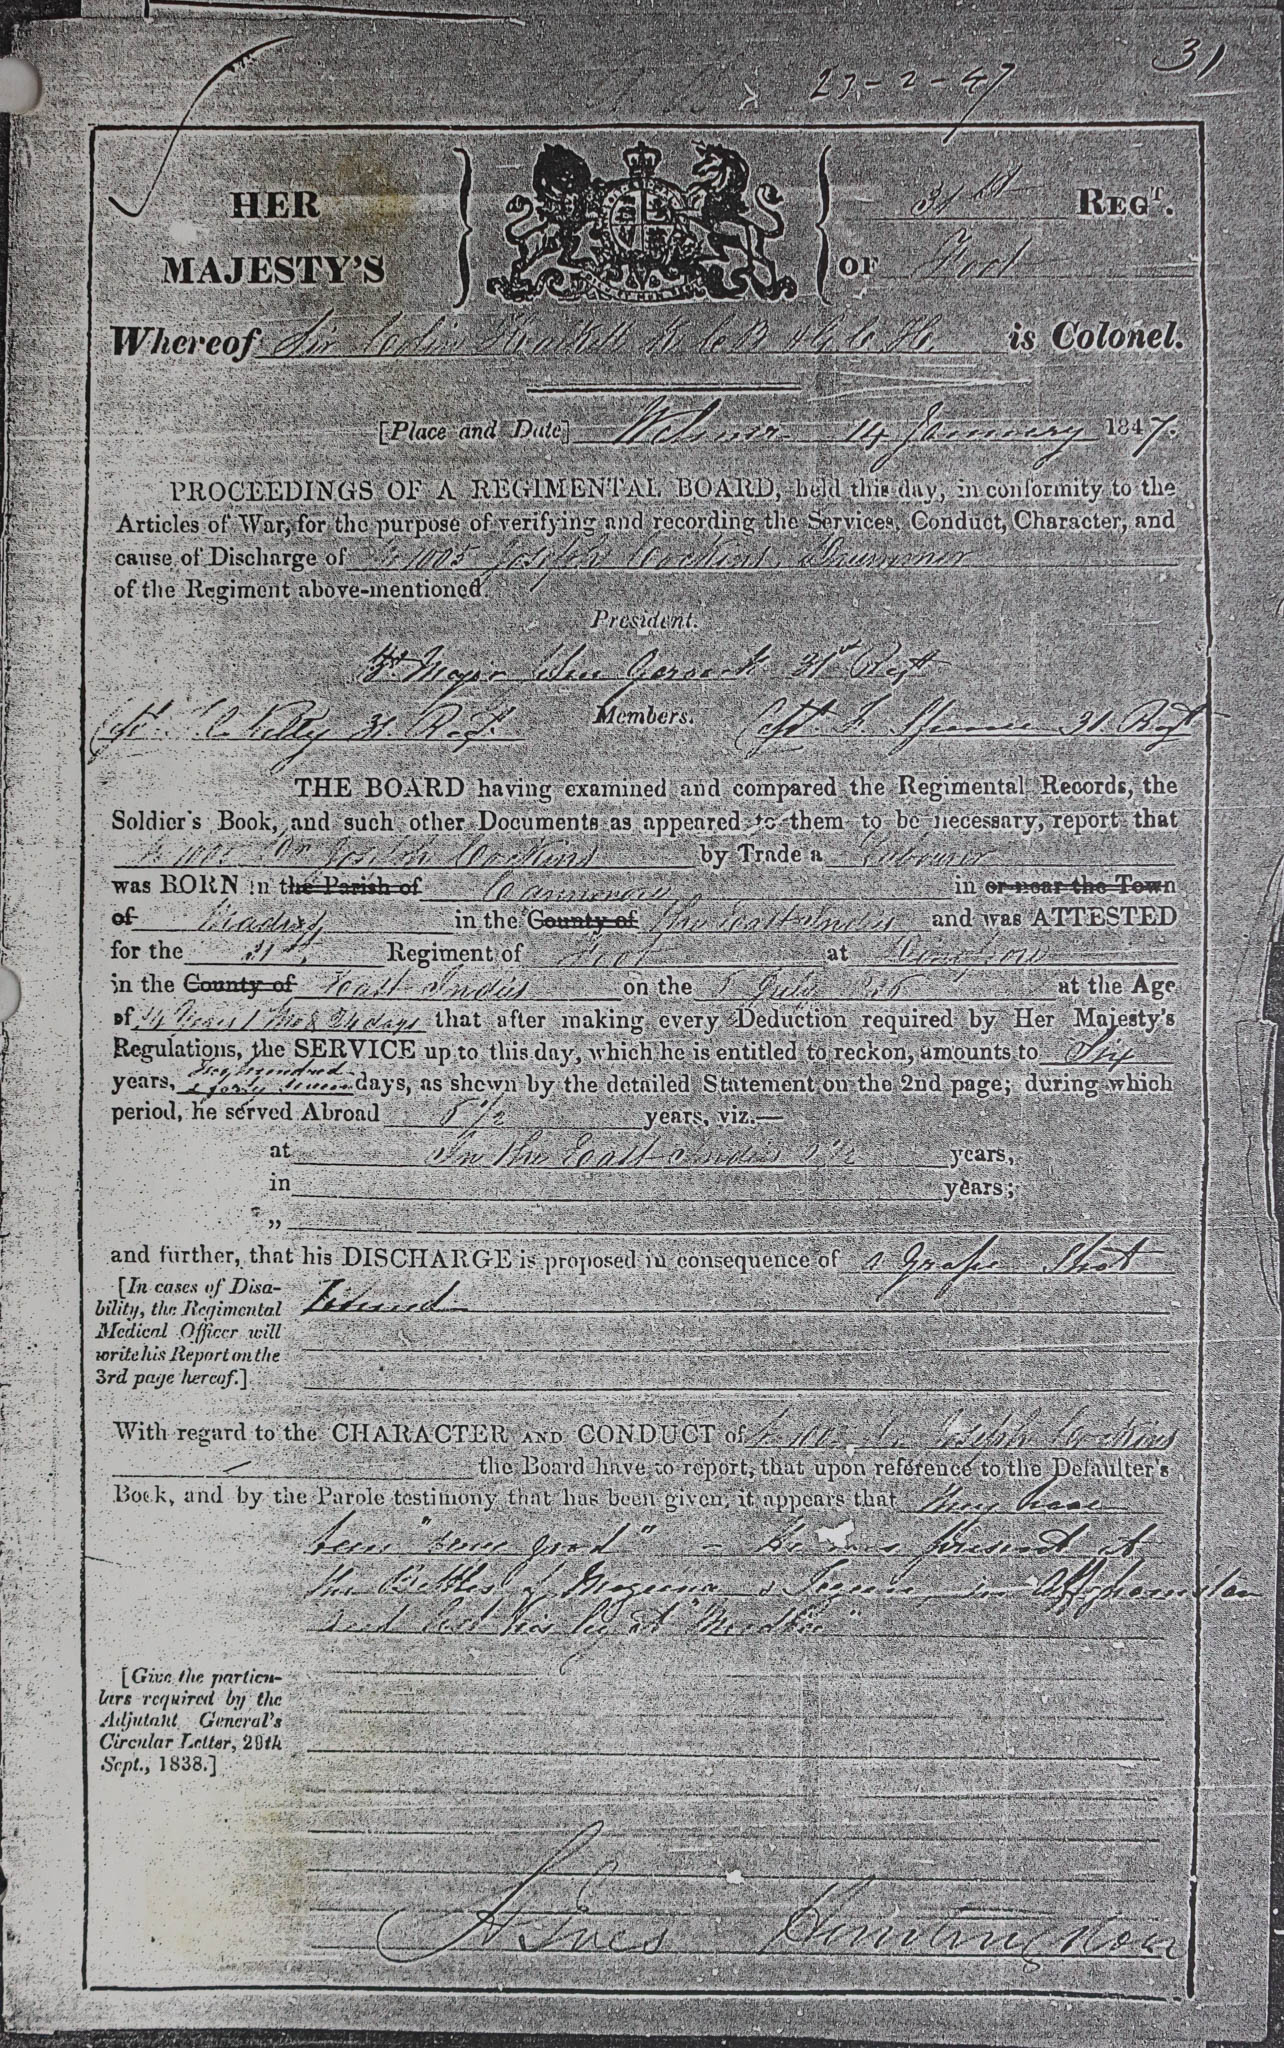 31
23-2-47
HER MAJESTY'S
31st REGT.
OF Foot
Whereof Sir Colin Halkett K.C.B. & G.C.H. is Colonel.
[Place and Date] 14 January 1847.
PROCEEDINGS OF A REGIMENTAL BOARD, held this day, in conformity to the
Articles of War, for the purpose of verifying and recording the Services, Conduct, Character, and
cause of Discharge of 1005 Joseph Cockins Drummer
of the Regiment above-mentioned.
President.
Bt Major 31st Regt
Members.
Capt. Kelly 31. Regt. Capt. F. Spence 31. Regt
THE BOARD having examined and compared the Regimental Records, the
Soldier's Book, and such other Documents as appeared to them to be necessary, report that
Joseph Cockins by Trade a Labourer
was BORN in the Parish of Cannanore in or near the Town
of Madras in the County of the East Indies and was ATTESTED
for the 31st Regiment of Foot at
in the County of East Indies on the July at the Age
of 14 Years 1 Mo & 24 days that after making every Deduction required by Her Majesty's
Regulations, the SERVICE up to this day, which he is entitled to reckon, amounts to Six
years, & forty seven days, as shewn by the detailed Statement on the 2nd page; during which
period, he served Abroad years, viz.—
at In the East Indies years,
in years;
„
and further, that his DISCHARGE is proposed in consequence of a Grape Shot
[In cases of Disability, the Regimental Medical Officer will write his Report on the 3rd page hereof.]
Wound
With regard to the CHARACTER AND CONDUCT of Joseph Cockins
the Board have to report, that upon reference to the Defaulter's
Book, and by the Parole testimony that has been given, it appears that they have
been "very good" - He was present at
the Battles of Mazeena & Tezeen, in Affghanistan
and lost his leg at "Moodkee"
[Give the particulars required by the Adjutant General's Circular Letter, 29th Sept., 1838.]